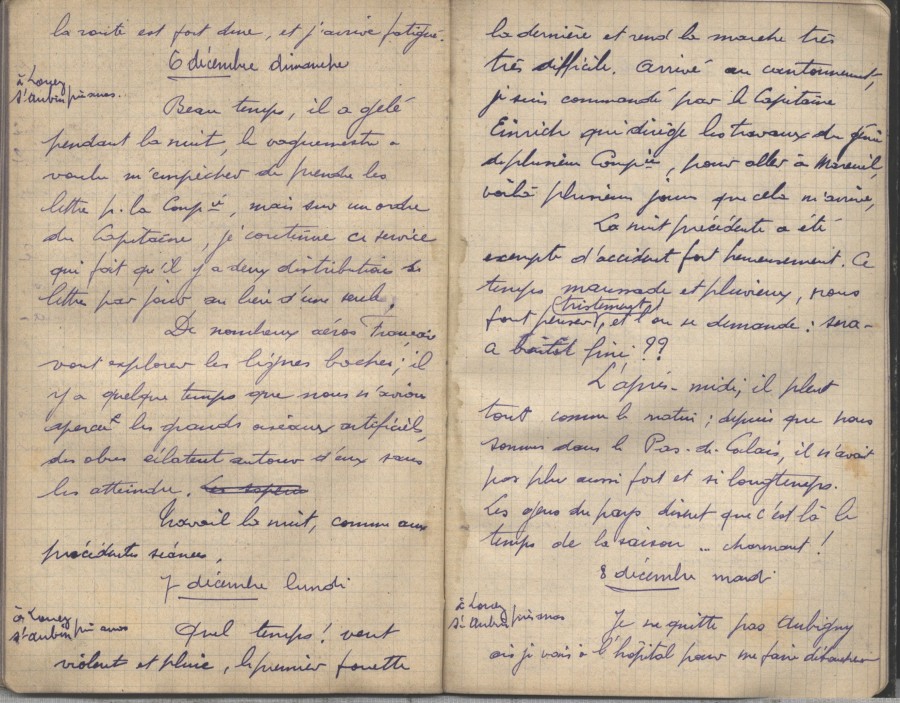 la route est fort dure, et j'arrive fatigué.
6 décembre dimanche
à Louez
St Aubin près anos.
Beau temps, il a gelé
pendant la nuit, le vaguemestre a
voulu m'empêcher de prendre les
lettre p. la Compie, mais sur un ordre
du Capitaine, je continue ce service
qui fait qu'il y a deux distribution de
lettre par jour au lieu d'une seule,
De nombreux aéros Français
vont explorer les lignes boches; il
y a quelque temps que nous n'avions
aperçut les grands oiseaux artificiels,
des obus éclatent autour d'eux sans
les atteindre.
Travail la nuit, comme aux
précédentes séances,
7 décembre lundi
à Louez
St Aubin près anos
Quel temps! vent
violent et pluie, le premier fouette
la dernière et rend la marche très
très difficile. Arrivé au cantonnement,
je suis commandé par le Capitaine
Einrich qui dirige les travaux du génie
de plusieurs Compie, pour aller à Mareuil,
voilà plusieurs jours que cela m'arrive,
La nuit précédente a été
exempte d'accident fort heureusement. Ce
temps maussade et pluvieux, nous
fait penser (tristement), et l'on se demande: sera-
a bientôt fini??
L'après-midi, il pleut
tout comme le matin; depuis que nous
sommes dans le Pas-de-Calais, il n'avait
pas plu aussi fort et si longtemps.
Les gens du pays disent que c'est là le
temps de la saison ... charmant!
8 décembre mardi
à Louez
St Aubin près anos
Je ne quitte pas Aubigny
ais je vais à l'hôpital pour me faire